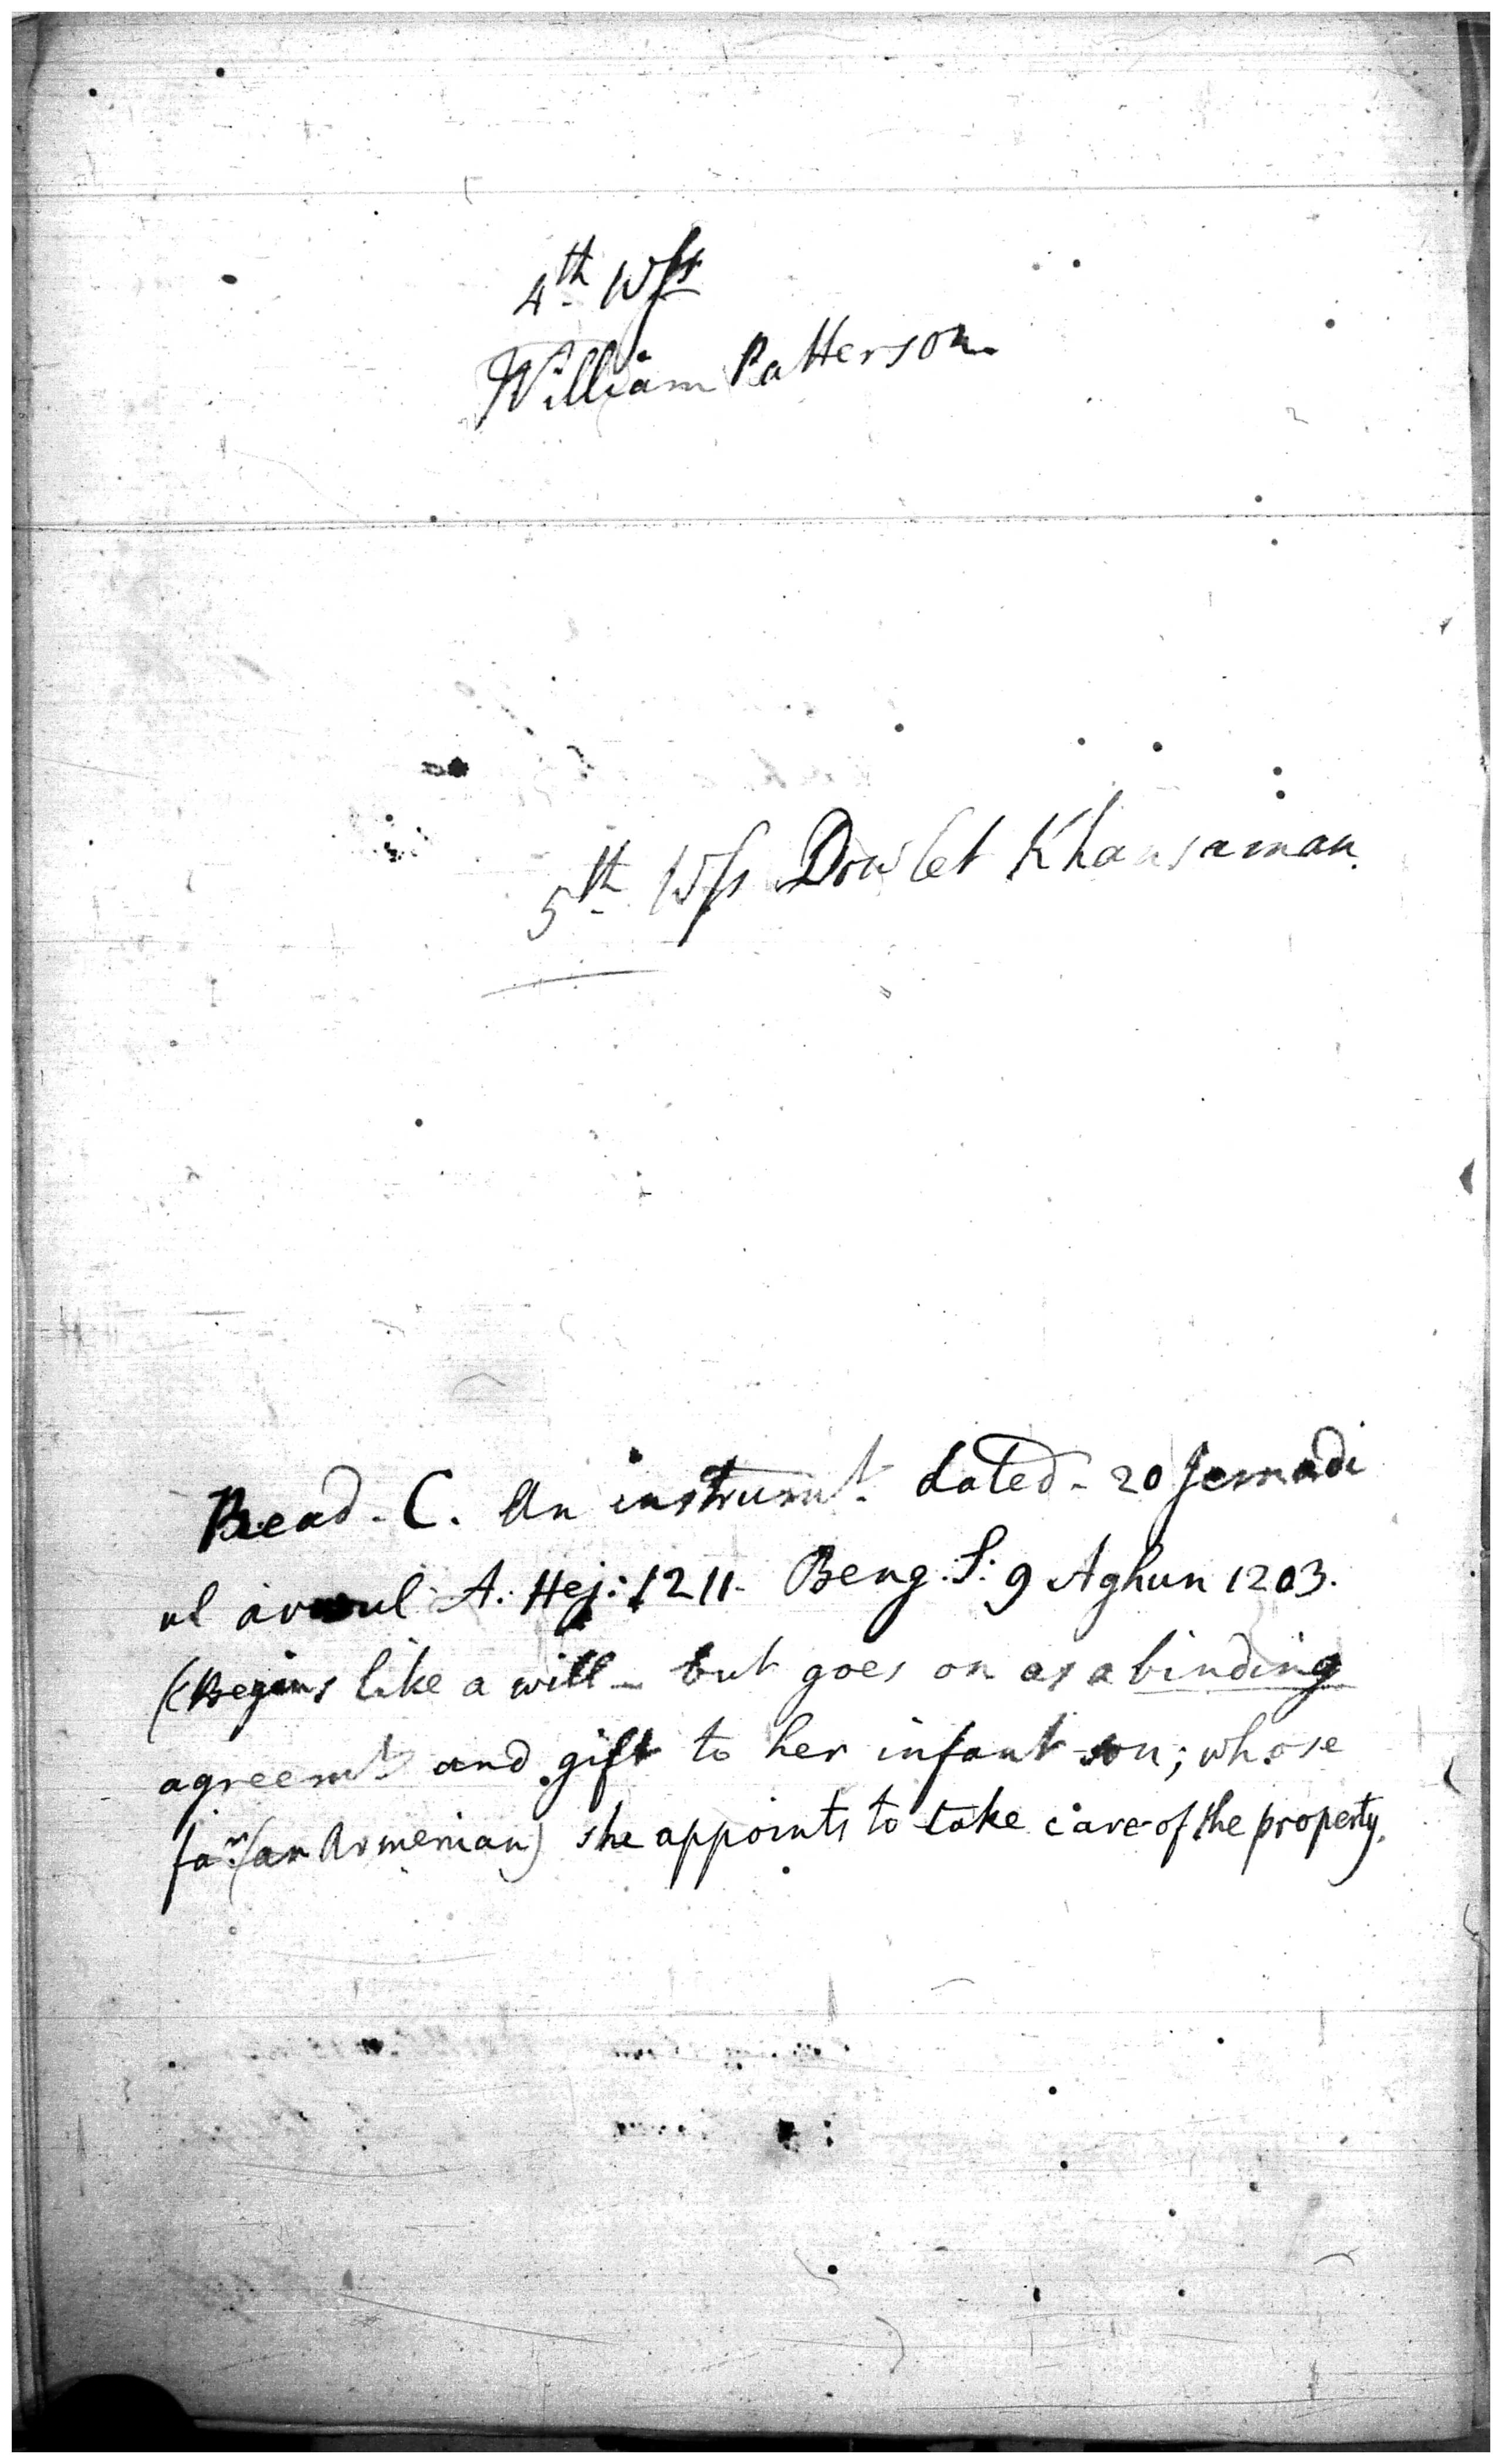 4th Wss
William Patterson
5th Wss Dowlet Khansaman.
Read. C. An instrumt dated - 20 Jemadi
ul awul A. Hej: 1211. Beng. S: 9 Aghun 1203.
(Begins like a will - but goes on as a binding
agreemt and gift to her infant son; whose
far (an Armenian) she appoints to take care of the property.